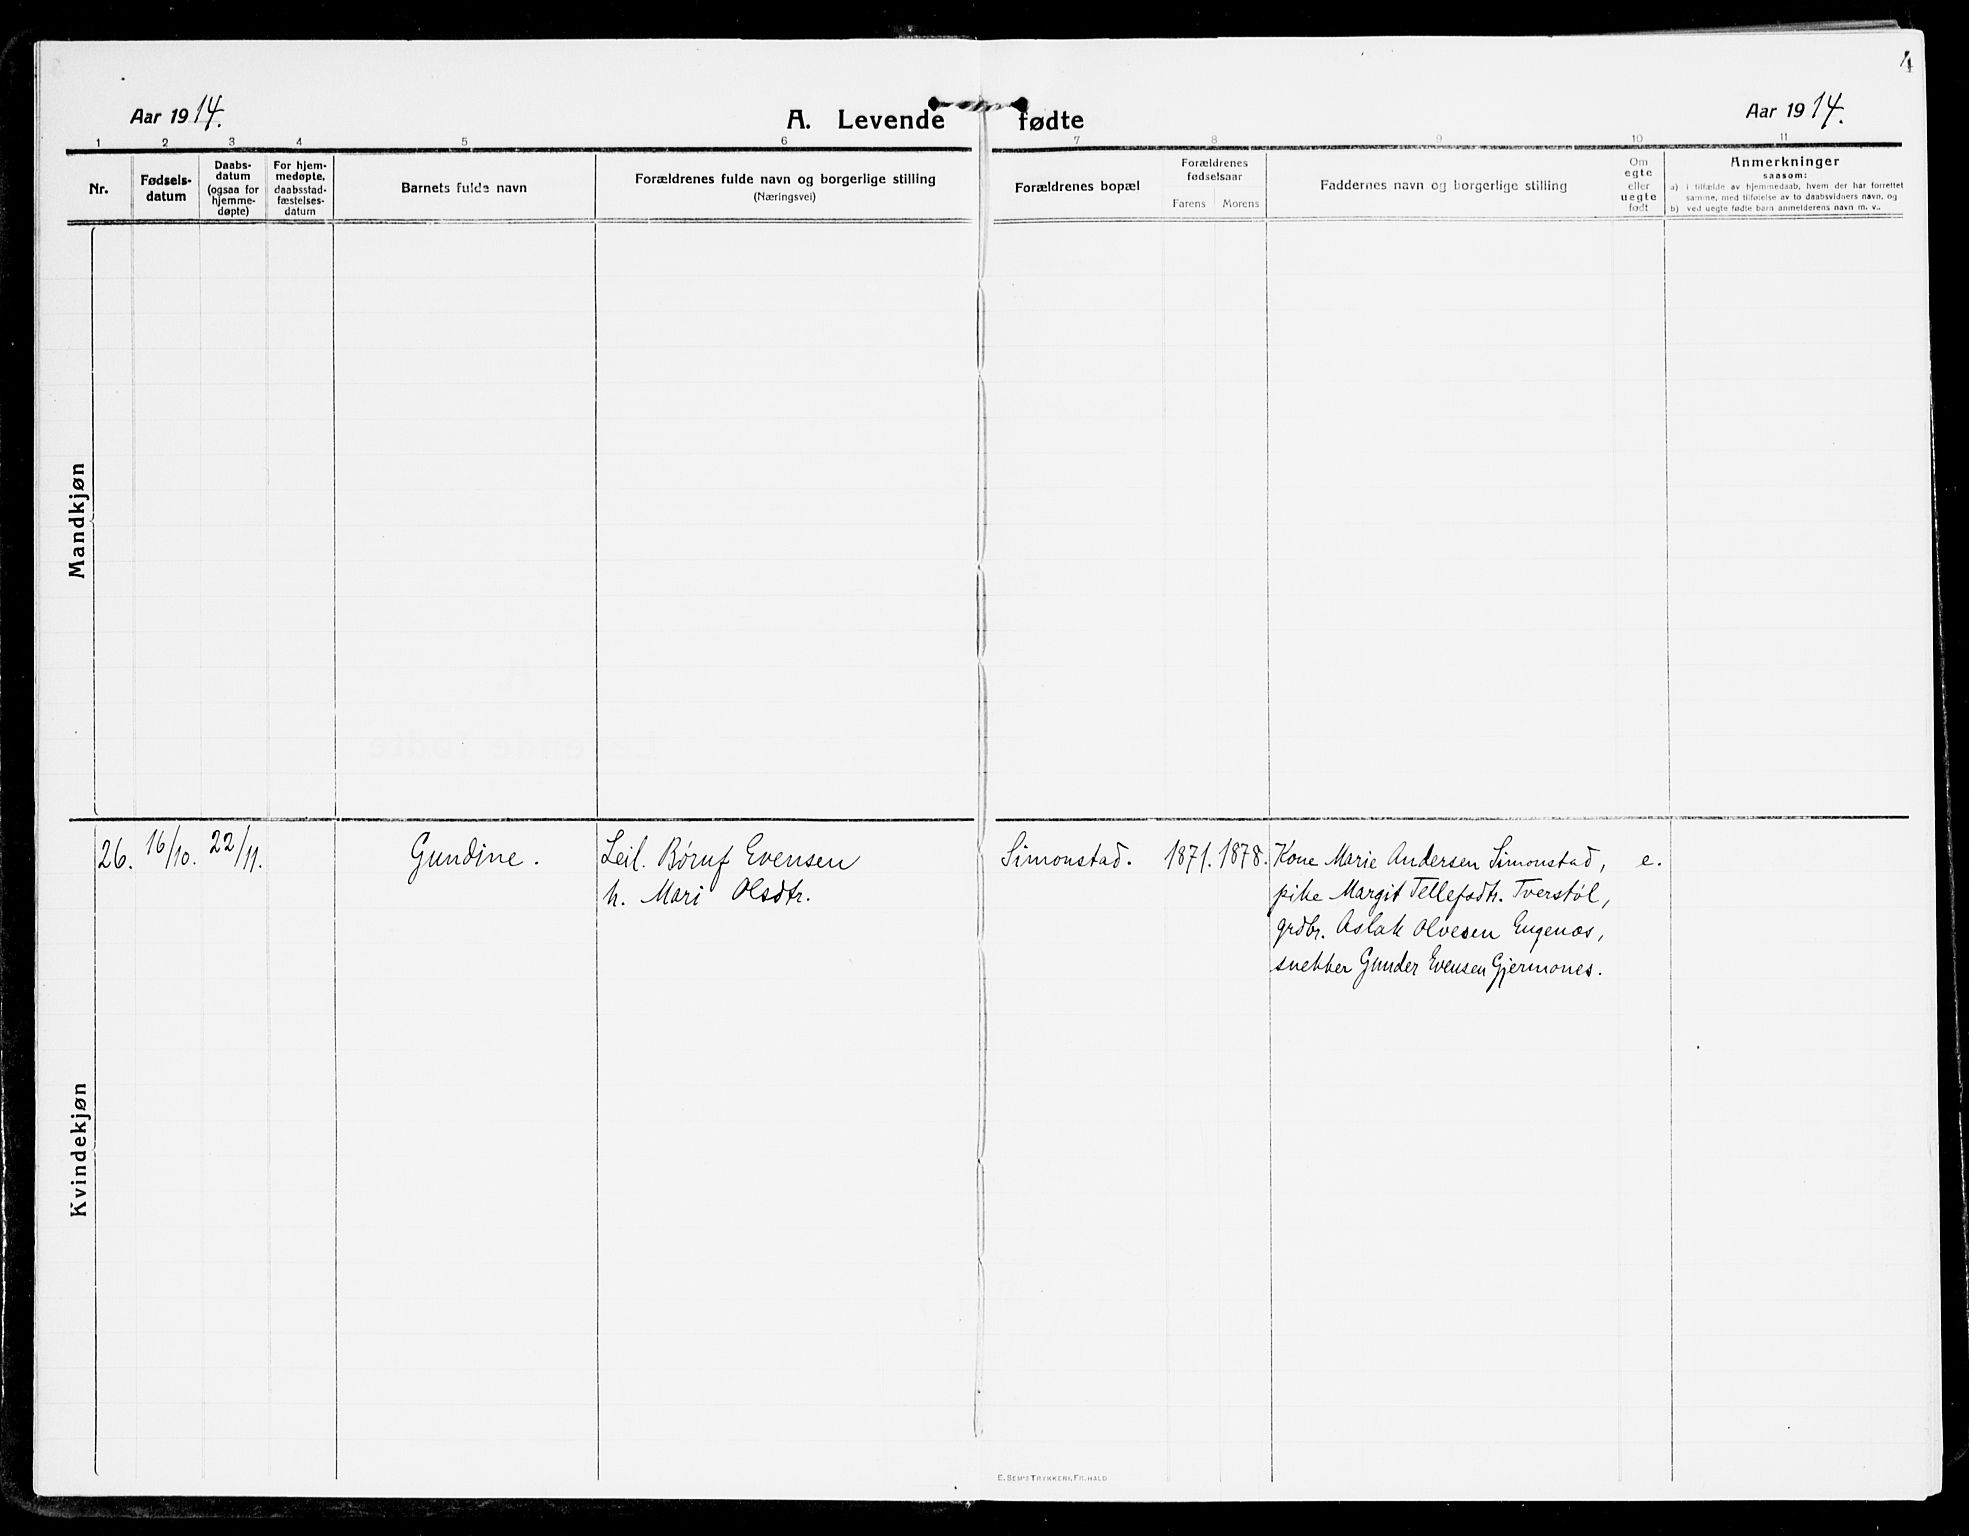 1
Aar 1914.
A. Levende fødte
Aar 1914.
1 2 3 4 5 6 7 8 9 10 11
Nr.
Fødsels-
datum
Daabs-
datum
(ogsaa for
hjemme-
døpte)
For hjem-
medøpte,
daabsstad-
fæstelses-
datum
Barnets fulde navn
Forældrenes fulde navn og borgerlige stilling
(Næringsvei)
Forældrenes bopæl
Forældrenes
fødselsaar
Farens Morens
Faddernes navn og borgerlige stilling
Om
egte
eller
uegte
født
Anmerkninger
saasom:
a) i tilfælde av hjemmedaab, hvem der har forrettet
samme, med tilføielse av to daabsvidners navn, og
b) ved uegte fødte barn anmelderens navn m. v..
Mandkjøn
Kvindekjøn
26. 16/10. 22/11.
Gundine.
Leil. Børuf Evensen
h. Mari Olsdtr.
Simonstad.
1871. 1878.
Kone Marie Andersen Simonstad,
pike Margit Tellefsdtr. Tverstøl,
grdbr. Aslak Olvesen Engenæs,
snekker Gunder Evensen Gjermones.
e.
E. SEM'S TRYKKERI, FR.HALD